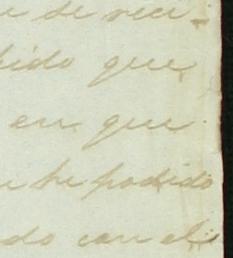 de reci-
bido que
en que
he podido
do con el